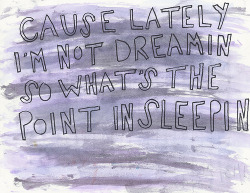 CAUSE LATELY
I'M NOT DREAMIN
SO WHAT'S THE
POINT IN SLEEPIN